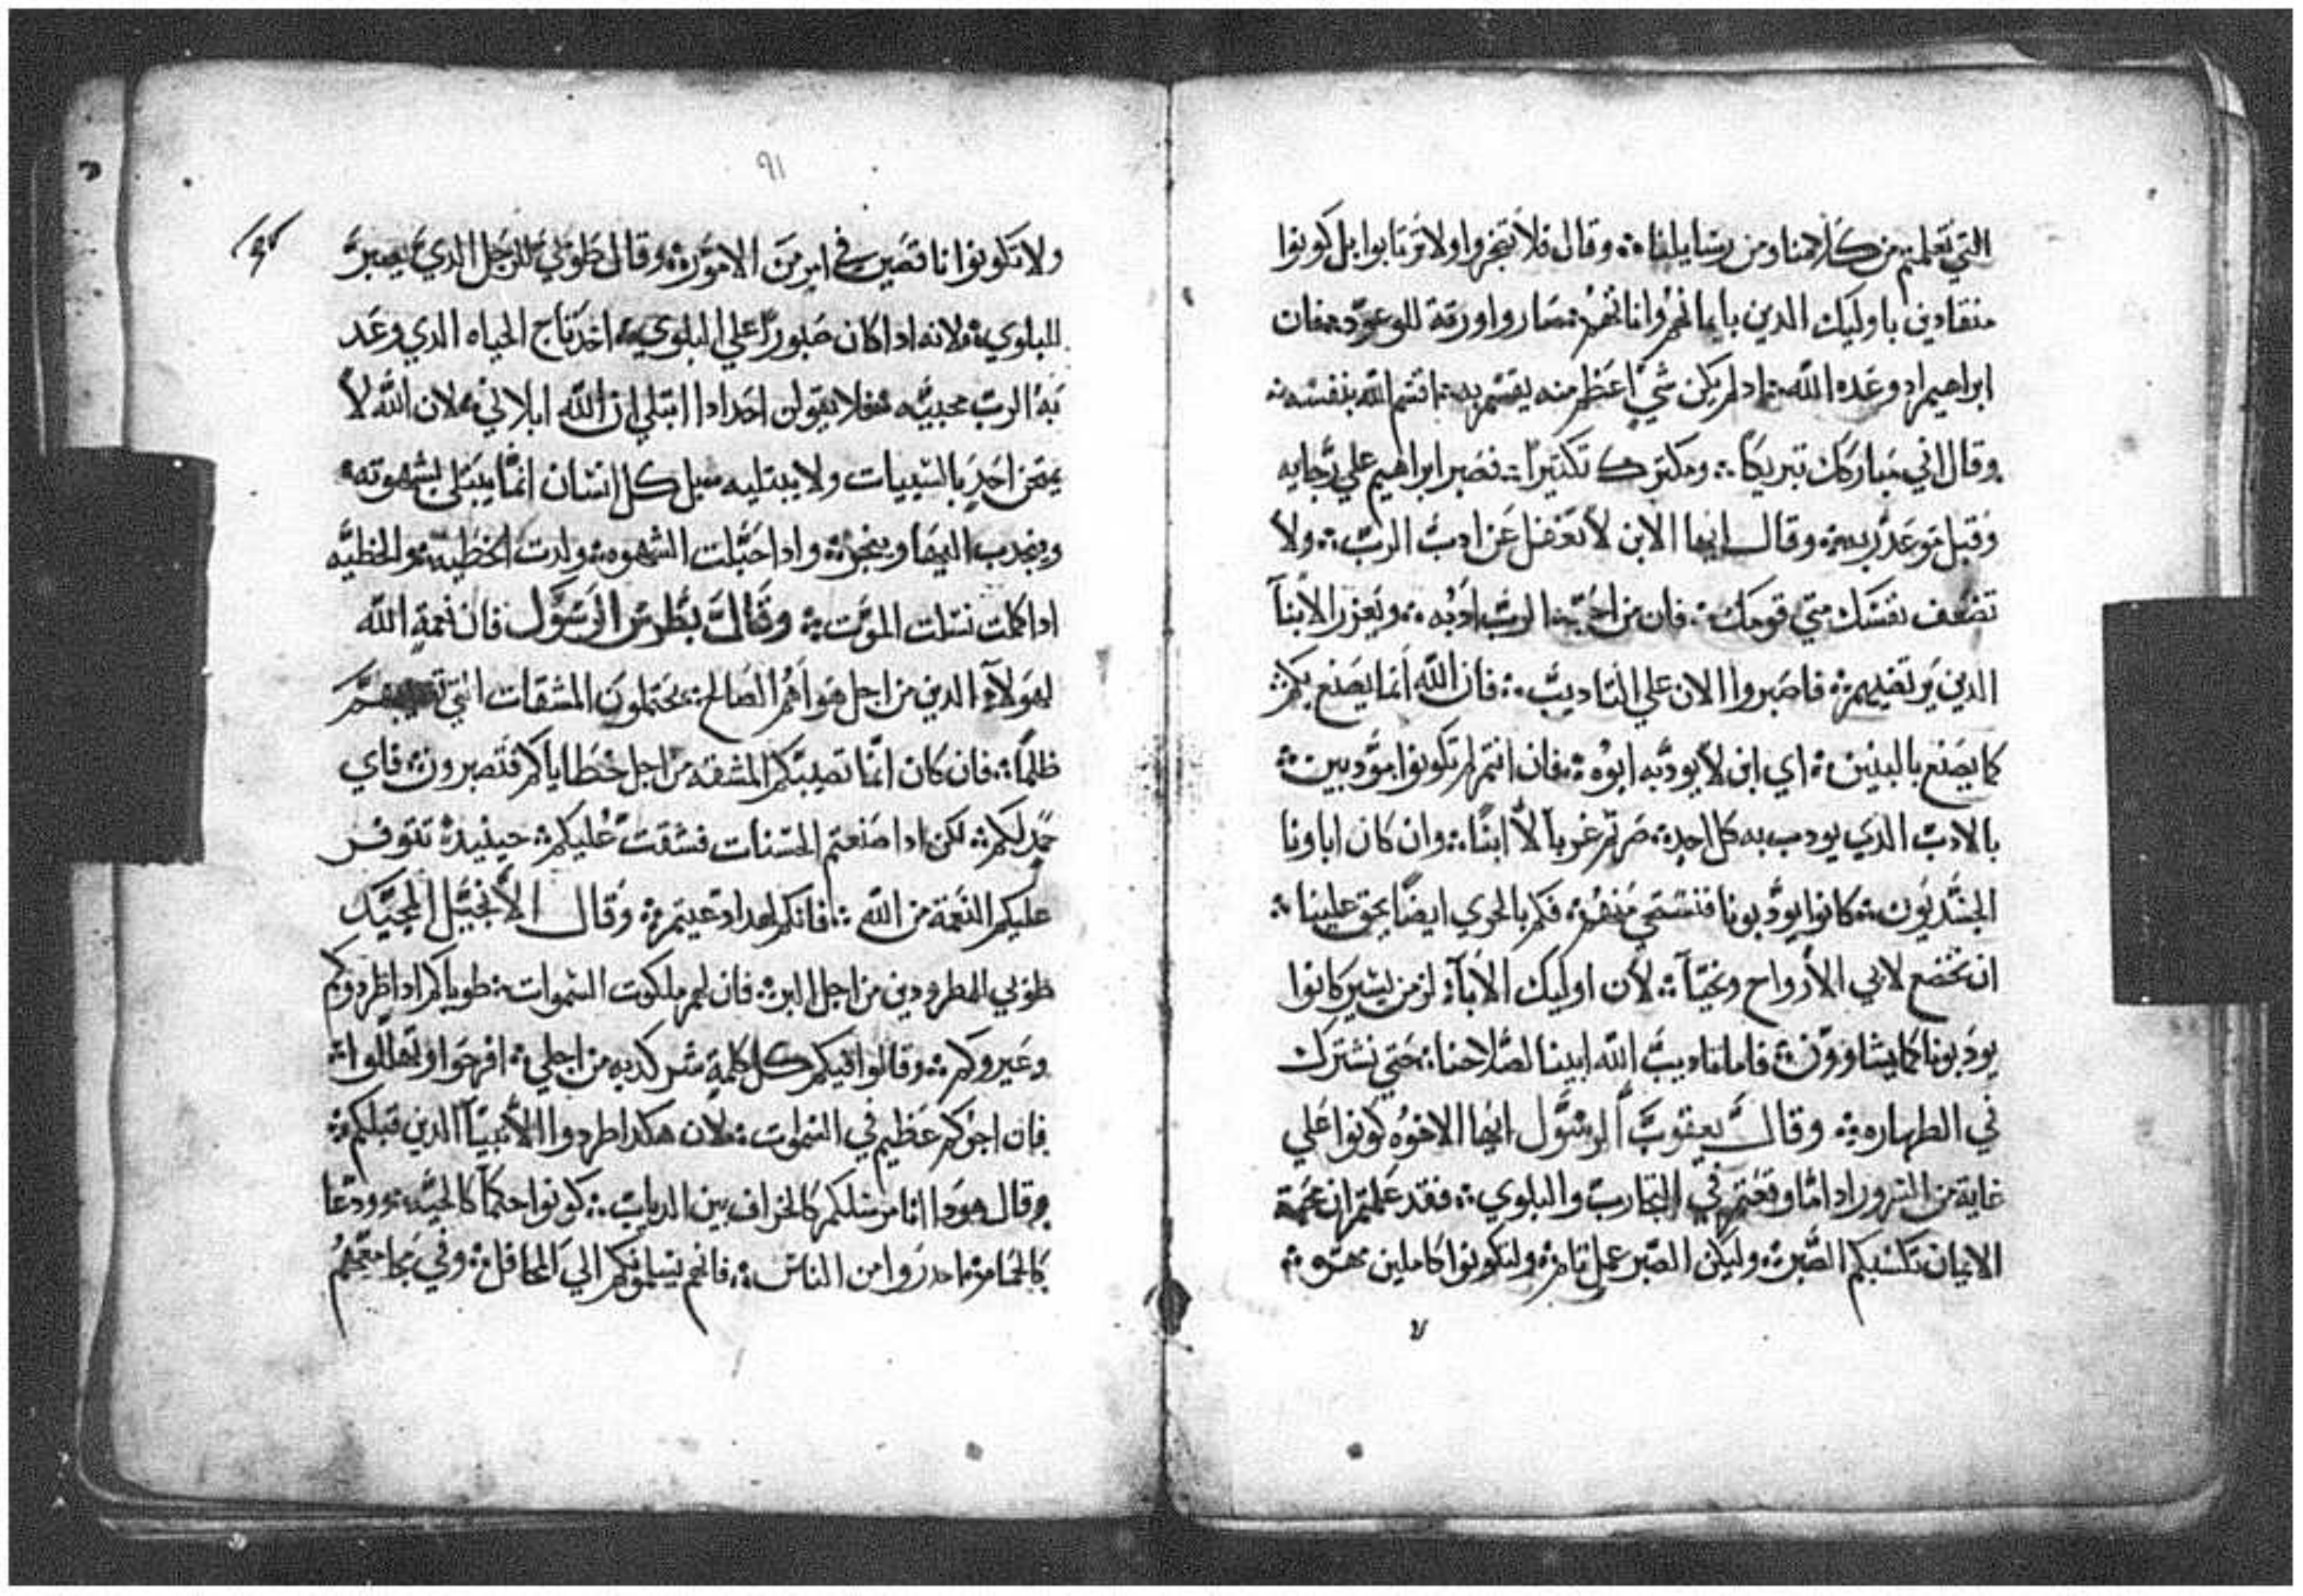 التي تعلمتم من كلامنا ومن رسايلنا ؞ وقال فلا تضجروا ولا ترتابوا بل كونوا
منقادين باوليك الدين بايمانهم واناتهم صاروا ورثة للوعود ؞ فان
ابراهيم اد وعده الله ؞ اد لم يكن شي اعظم منه يقسم به ؞ اقسم الله بنفسه ؞
وقال اني مباركك تبريكا ؞ ومكترك تكتيرا ؞ فصبر ابراهيم علي رجايه
وقبل موعد ربه ؞ وقال ايها الابن لا تغفل عن ادب الرب ؞ ولا
تضعف نفسك متي قومك ؞ فان من احبه الرب ادبه ؞ ويعزر الابنآ
الدين يرتضيهم ؞ فاصبروا الان علي التاديب ؞ فان الله انما يصنع بكم ؞
كما يصنع بالبنين ؞ اي ابن لا يودبه ابوه ؞ فان انتم لم تكونوا مودبين ؞
بالادب الدي يودب به كل احد ؞ صرتم غربآ لا ابنآ ؞ وان كان اباونا
الجسديون ؞ كانوا يودبونا فنستحي منهم ؞ فكم بالحري ايضا يحق علينا ؞
ان نخضع لابي الارواح ونحيآ ؞ لان اوليك الابآ لزمن يسير كانوا
يودبونا كما يشاوون ؞ فاما تاديب الله ابينا لصلاحنا ؞ حتي نشترك
في الطهاره ؞ وقال يعقوب الرسول ايها الاخوه كونوا علي
غاية من السرور ادا ما وقعتم في التجارب والبلوي ؞ فقد علمتم ان محنة
الايمان تكسبكم الصبر ؞ وليكن الصبر عمل تام ؞ ولتكونوا كاملين
٩١
ولا تكونوا ناقصين في امر من الامور ؞ وقال طوبي للرجل الدي يصبر
للبلوي ؞ لانه ادا كان صبورا علي البلوي ؞ اخد تاج الحياه الدي وعد
به الرب محبيه ؞ فلا يقولن احد ادا ابتلي ان الله ابلاني ؞ لان الله لا
يمتحن احد بالسييات ولا يبتليه ؞ بل كل انسان انما يبتلي بشهوته ؞
وينجدب اليها وينجر ؞ وادا حبلت الشهوه ؞ ولدت الخطيه ؞ والخطيه
ادا كملت نسلت الموت ؞ وقال بطرس الرسول فان نعمة الله
لهولآء الدين من اجل هواهم الصالح ؞ يحتملون المشقات التي
ظلما ؞ فان كان انما تصيبكم المشقه من اجل خطاياكم فتصبرون ؞ فاي
حمد لكم ؞ لكن ادا صنعتم الحسنات فشقت عليكم ؞ حينيد تتوفر
عليكم النعمة من الله ؞ فانكم لهدا دعيتم ؞ وقال الانجيل المجيد
طوبي للمطرودين من اجل البر ؞ فان لهم ملكوت السموات ؞ طوباكم ادا طردوكم
وعيروكم ؞ وقالوا فيكم كل كلمة شر كدبه من اجلي ؞ افرحوا وتهللوا ؞
فان اجركم عظيم في السموات ؞ لان هكدا طردوا الانبيآ الدين قبلكم ؞
وقال هودا انا مرسلكم كالخراف بين الدياب ؞ كونوا حكمآ كالحيه ؞ وودعا
كالحمامه ؞ احدروا من الناس ؞ فانهم يسلمونكم الي المحافل ؞ وفي مجامعهم